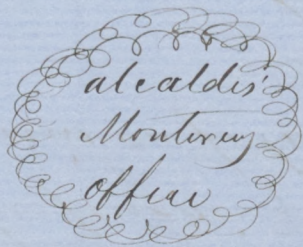 alcaldis'
Monterey
office